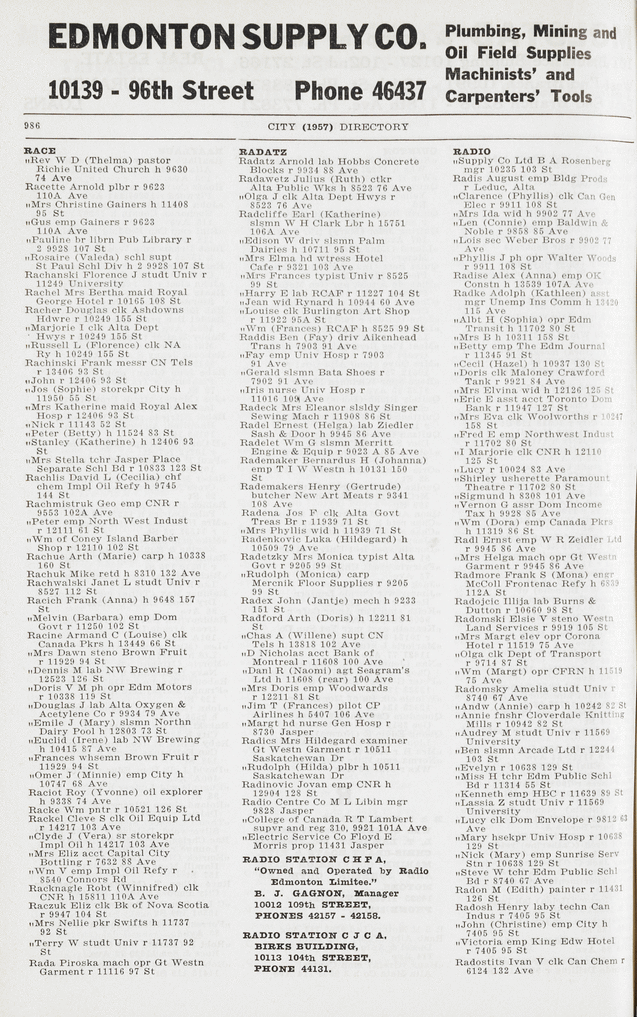 EDMONTON SUPPLY CO.
10139 - 96th Street Phone 46437
Plumbing, Mining and
Oil Field Supplies
Machinists' and
Carpenters' Tools
986
CITY (1957) DIRECTORY
RACE
„Rev W D (Thelma) pastor
Richie United Church h 9630
74 Ave
Racette Arnold plbr r 9623
110A Ave
„Mrs Christine Gainers h 11408
95 St
„Gus emp Gainers r 9623
110A Ave
„Pauline br librn Pub Library r
2 9928 107 St
„Rosaire (Valeda) schl supt
St Paul Schl Div h 2 9928 107 St
Rachanski Florence J studt Univ r
11249 University
Rachel Mrs Bertha maid Royal
George Hotel r 10165 108 St
Racher Douglas clk Ashdowns
Hdwre r 10249 155 St
„Marjorie I clk Alta Dept
Hwys r 10249 155 St
„Russell L (Florence) clk NA
Ry h 10249 155 St
Rachinski Frank messr CN Tels
r 13406 93 St
„John r 12406 93 St
„Jos (Sophie) storekpr City h
11950 55 St
„Mrs Katherine maid Royal Alex
Hosp r 12406 93 St
„Nick r 11143 52 St
„Peter (Betty) h 11524 83 St
„Stanley (Katherine) h 12406 93
St
„Mrs Stella tchr Jasper Place
Separate Schl Bd r 10833 123 St
Rachlis David L (Cecilia) chf
chem Impl Oil Refy h 9745
144 St
Rachmistruk Geo emp CNR r
9553 102A Ave
„Peter emp North West Indust
r 12111 61 St
„Wm of Coney Island Barber
Shop r 12110 102 St
Rachue Arth (Marie) carp h 10338
160 St
Rachuk Mike retd h 8310 132 Ave
Rachwalski Janet L studt Univ r
8527 112 St
Racich Frank (Anna) h 9648 157
St
„Melvin (Barbara) emp Dom
Govt r 11250 102 St
Racine Armand C (Louise) clk
Canada Pkrs h 13449 66 St
„Mrs Dawn steno Brown Fruit
r 11929 94 St
„Dennis M lab NW Brewing r
12523 126 St
„Doris V M ph opr Edm Motors
r 10338 119 St
„Douglas J lab Alta Oxygen &
Acetylene Co r 9934 79 Ave
„Emile J (Mary) slsmn Northn
Dairy Pool h 12803 73 St
„Euclid (Irene) lab NW Brewing
h 10415 87 Ave
„Frances whsemn Brown Fruit r
11929 94 St
„Omer J (Minnie) emp City h
10747 68 Ave
Raciot Roy (Yvonne) oil explorer
h 9338 74 Ave
Racke Wm pntr r 10521 126 St
Rackel Cleve S clk Oil Equip Ltd
r 14217 103 Ave
„Clyde J (Vera) sr storekpr
Impl Oil h 14217 103 Ave
„Mrs Eliz acct Capital City
Bottling r 7632 88 Ave
„Wm V emp Impl Oil Refy r
8540 Connors Rd
Racknagle Robt (Winnifred) clk
CNR h 15811 110A Ave
Raczuk Eliz clk Bk of Nova Scotia
r 9947 104 St
„Mrs Nellie pkr Swifts h 11737
92 St
„Terry W studt Univ r 11737 92
St
Rada Piroska mach opr Gt Westn
Garment r 11116 97 St
RADATZ
Radatz Arnold lab Hobbs Concrete
Blocks r 9934 88 Ave
Radawetz Julius (Ruth) ctkr
Alta Public Wks h 8523 76 Ave
„Olga J clk Alta Dept Hwys r
8523 76 Ave
Radcliffe Earl (Katherine)
slsmn W H Clark Lbr h 15751
106A Ave
„Edison W driv slsmn Palm
Dairies h 10711 95 St
„Mrs Elma hd wtress Hotel
Cafe r 9321 103 Ave
„Mrs Frances typist Univ r 8525
99 St
„Harry E lab RCAF r 11227 104 St
„Jean wid Rynard h 10944 60 Ave
„Louise clk Burlington Art Shop
r 11922 95A St
„Wm (Frances) RCAF h 8525 99 St
Raddis Ben (Fay) driv Aikenhead
Trans h 7903 91 Ave
„Fay emp Univ Hosp r 7903
91 Ave
„Gerald slsmn Bata Shoes r
7902 91 Ave
„Iris nurse Univ Hosp r
11016 109 Ave
Radeck Mrs Eleanor slsldy Singer
Sewing Mach r 11908 86 St
Radel Ernest (Helga) lab Ziedler
Sash & Door h 9945 86 Ave
Radelet Wm G slsmn Merritt
Engine & Equip r 9023 A 85 Ave
Rademaker Bernardus H (Johanna)
emp T I W Westn h 10131 150
St
Rademakers Henry (Gertrude)
butcher New Art Meats r 9341
108 Ave
Radena Jos F clk Alta Govt
Treas Br r 11939 71 St
„Mrs Phyllis wid h 11939 71 St
Radenkovic Luka (Hildegard) h
10509 79 Ave
Radetzky Mrs Monica typist Alta
Govt r 9205 99 St
„Rudolph (Monica) carp
Mercnik Floor Supplies r 9205
99 St
Radex John (Jantje) mech h 9233
151 St
Radford Arth (Doris) h 12211 81
St
„Chas A (Willene) supt CN
Tels h 13818 102 Ave
„D Nicholas acct Bank of
Montreal r 11608 100 Ave
„Danl R (Naomi) agt Seagram's
Ltd h 11608 (rear) 100 Ave
„Mrs Doris emp Woodwards
r 12211 81 St
„Jim T (Frances) pilot CP
Airlines h 5407 106 Ave
„Margt hd nurse Gen Hosp r
8730 Jasper
Radics Mrs Hildegard examiner
Gt Westn Garment r 10511
Saskatchewan Dr
„Rudolph (Hilda) plbr h 10511
Saskatchewan Dr
Radinovic Jovan emp CNR h
12904 128 St
Radio Centre Co M L Libin mgr
9828 Jasper
„College of Canada R T Lambert
supvr and reg 310, 9921 101A Ave
„Electric Service Co Floyd E
Morris prop 11431 Jasper
RADIO STATION C H F A,
"Owned and Operated by Radio
Edmonton Limitee."
B. J. GAGNON, Manager
10012 109th STREET,
PHONES 42157 - 42158.
RADIO STATION C J C A,
BIRKS BUILDING,
10113 104th STREET,
PHONE 44131.
RADIO
„Supply Co Ltd B A Rosenberg
mgr 10235 103 St
Radis August emp Bldg Prods
r Leduc, Alta
„Clarence (Phyllis) clk Can Gen
Elec r 9911 108 St
„Mrs Ida wid h 9902 77 Ave
„Len (Connie) emp Baldwin &
Noble r 9858 85 Ave
„Lois sec Weber Bros r 9902 77
Ave
„Phyllis J ph opr Walter Woods
r 9911 108 St
Radise Alex (Anna) emp OK
Constn h 13539 107A Ave
Radke Adolph (Kathleen) asst
mgr Unemp Ins Comm h 13420
115 Ave
„Albt H (Sophia) opr Edm
Transit h 11702 80 St
„Mrs B h 10311 158 St
„Betty emp The Edm Journal
r 11345 91 St
„Cecil (Hazel) h 10937 130 St
„Doris clk Maloney Crawford
Tank r 9921 84 Ave
„Mrs Elvina wid h 12126 125 St
„Eric E asst acct Toronto Dom
Bank r 11947 127 St
„Mrs Eva clk Woolworths r 10247
158 St
„Fred E emp Northwest Indust
r 11702 80 St
„I Marjorie clk CNR h 12110
125 St
„Lucy r 10024 83 Ave
„Shirley usherette Paramount
Theatre r 11702 80 St
„Sigmund h 8308 101 Ave
„Vernon G assr Dom Income
Tax h 9928 85 Ave
„Wm (Dora) emp Canada Pkrs
h 11319 86 St
Radl Ernst emp W R Zeidler Ltd
r 9945 86 Ave
„Mrs Helga mach opr Gt Westn
Garment r 9945 86 Ave
Radmore Frank S (Mona) engr
McColl Frontenac Refy h 6839
112A St
Radojcic Ilija lab Burns &
Dutton r 10660 98 St
Radomski Elsie V steno Westn
Land Services r 9919 105 St
„Mrs Margt elev opr Corona
Hotel r 11519 75 Ave
„Olga clk Dept of Transport
r 9714 87 St
„Wm (Margt) opr CFRN h 11519
75 Ave
Radomsky Amelia studt Univ r
8740 67 Ave
„Andw (Annie) carp h 10242 82 St
„Annie fnshr Cloverdale Knitting
Mills r 10942 82 St
„Audrey M studt Univ r 11569
University
„Ben slsmn Arcade Ltd r 12244
103 St
„Evelyn r 10638 129 St
„Miss H tchr Edm Public Schl
Bd r 11314 55 St
„Kenneth emp HBC r 11639 89 St
„Lassia Z studt Univ r 11569
University
„Lucy clk Dom Envelope r 9812 63
Ave
„Mary hsekpr Univ Hosp r 10638
129 St
„Nick (Mary) emp Sunrise Serv
Stn r 10638 129 St
„Steve W tchr Edm Public Schl
Bd r 8740 67 Ave
Radon M (Edith) painter r 11431
126 St
Radosh Henry laby techn Can
Indus r 7405 95 St
„John (Christine) emp City h
7405 95 St
„Victoria emp King Edw Hotel
r 7405 95 St
Radostits Ivan V clk Can Chem r
6124 132 Ave